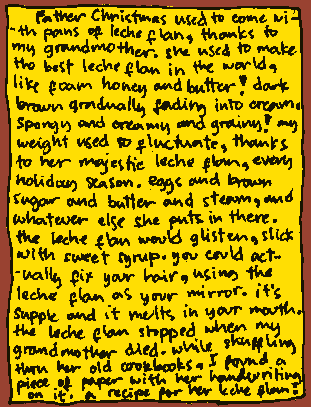 Father Christmas used to come wi-
-th pans of leche flan, thanks to
my grandmother. she used to make
the best leche flan in the world,
like foam honey and butter! dark
brown gradually fading into cream.
spongy and creamy and grainy! my
weight used to fluctuate, thanks
to her majestic leche flan, every
holiday season. eggs and brown
sugar and butter and steam, and
whatever else she puts in there.
the leche flan would glisten, slick
with sweet syrup. you could act-
-ually fix your hair, using the
leche flan as your mirror. it's
supple and it melts in your mouth.
the leche flan stopped when my
grandmother died. while shuffling
thru her old cookbooks, I found a
piece of paper with her handwriting
on it. a recipe for her leche flan!